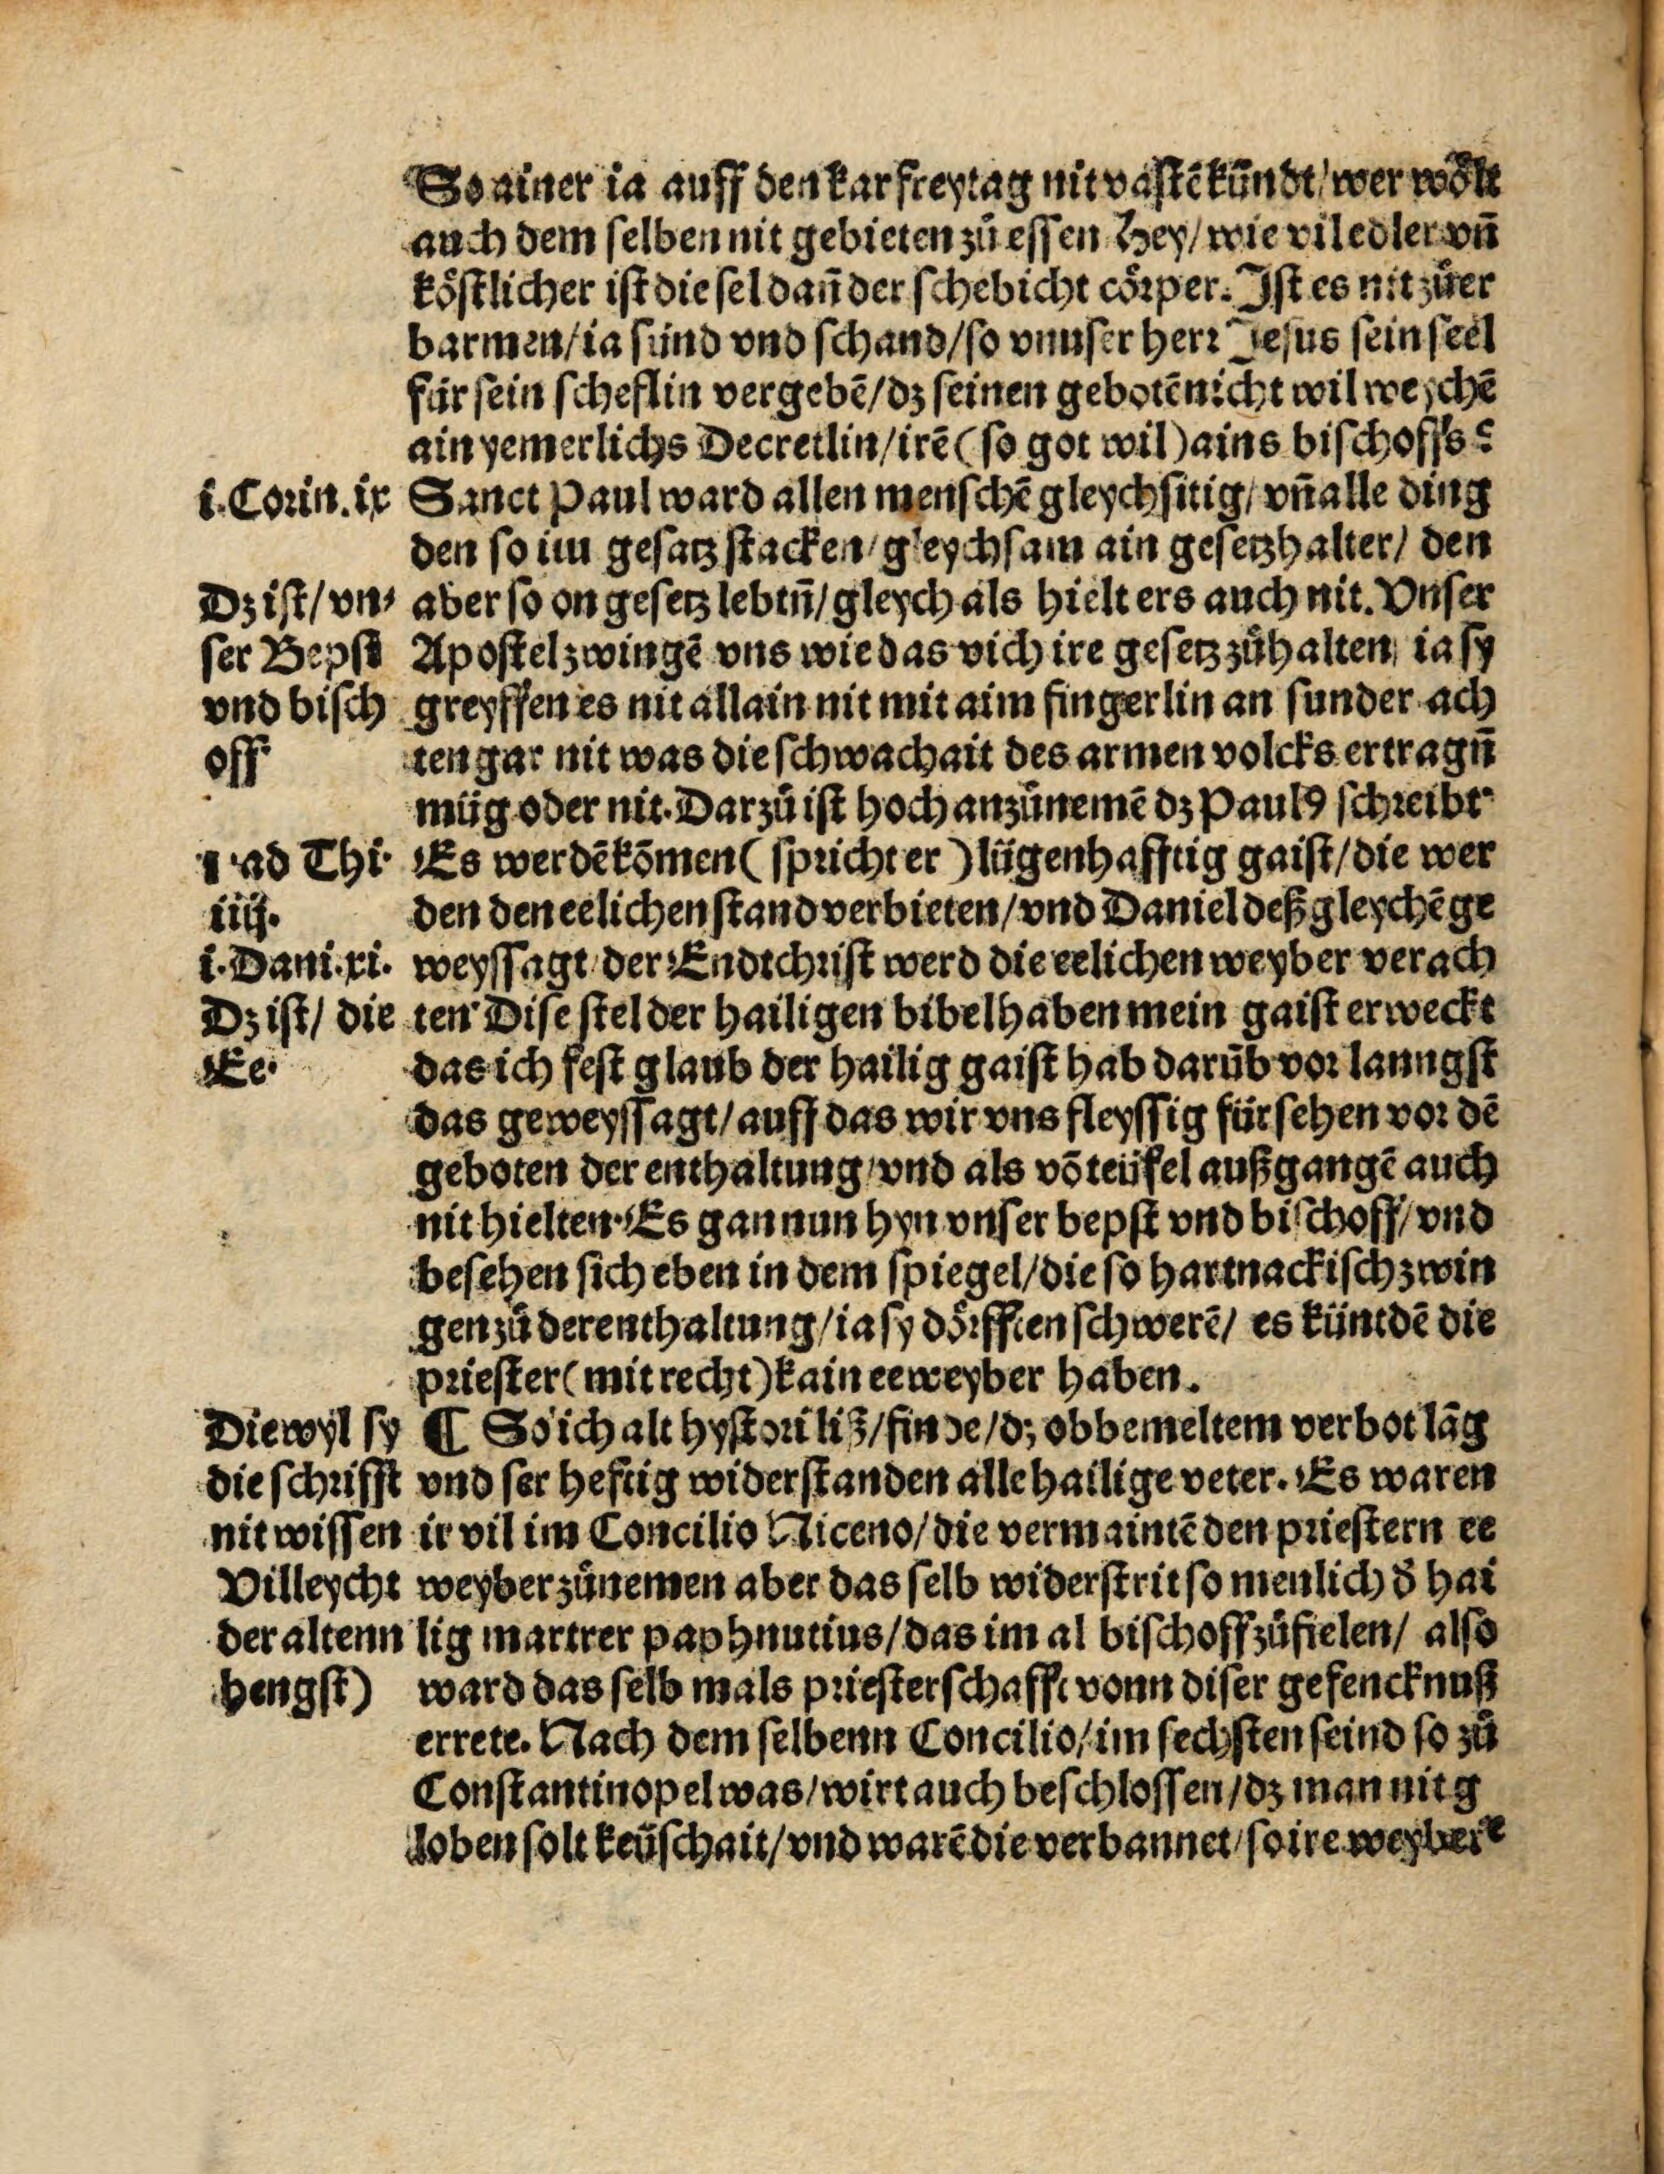 So ainer ia auff den karfreytag nit vastē kündt/ wer wölt
auch dem selben nit gebieten zů essen Hey/ wie vil edler vn̄
köstlicher ist die sel dan̄ der schebicht cörper. Ist es nit zů er
barmen/ ia sünd vnd schand/ so vnnser herr Jesus sein seel
für sein scheflin vergebē/ dz seinen gebotē nicht wil weychē
ain yemerlichs Decretlin/ irē (so got wil) ains bischoffs?
i. Corin. ix
Sanct Paul ward allen menschē gleychsitig/ vn̄ alle ding
den so im gesatz stacken/ gleychsam ain gesetzhalter/ den
Dz ist/ vn⸗
ser Bepst
vnd bisch
off
aber so on gesetz lebtn̄/ gleych als hielt ers auch nit. Vnser
Apostel zwingē vns wie das vich ire gesetz zů halten/ ia sy
greyffen es nit allain nit mit aim fingerlin an sunder ach
ten gar nit was die schwachait des armen volcks ertragn̄
müg oder nit. Darzů ist hoch anzůnemē dz Paulꝯ schreibt
1 ad Thi.
iiij.
Es werdē kōmen (spricht er) lügenhafftig gaist/ die wer
den den eelichen stand verbieten/ vnd Daniel deßgleychē ge
i. Dani. xi.
Dz ist/ die
Ee.
weyssagt/ der Endtchrist werd die eelichen weyber verach
ten Dise stel der hailigen bibel haben mein gaist erweckt
das ich fest glaub der hailig gaist hab darūb vor lanngst
das geweyssagt/ auff das wir vns fleyssig fürsehen vor dē
geboten der enthaltung/ vnd als vō teüfel außgangē auch
nit hielten. Es gan nun hyn vnser bepst vnd bischoff/ vnd
besehen sich eben in dem spiegel/ die so hartnackisch zwin
gen zů der enthaltung/ ia sy dörfften schwerē/ es küntdē die
priester (mit recht) kain eeweyber haben.
Die wyl sy
die schrifft
nit wissen
Villeycht
der altenn
hengst)
¶ So ich alt hystori liß/ finde/ dz obbemeltem verbot lāg
vnd ser heftig widerstanden alle hailige veter. Es waren
ir vil im Concilio Niceno/ die vermaintē den priestern ee
weyber zůnemen aber das selb widerstrit so menlich d' hai
lig martrer paphnutius/ das im al bischoff zůfielen/ also
ward das selb mals priesterschafft vonn diser gefencknuß
errete. Nach dem selbenn Concilio/ im sechsten seind so zů
Constantinopel was/ wirt auch beschlossen/ dz man nit g
loben solt keüschait/ vnd warē die verbannet/ so ire weyber e